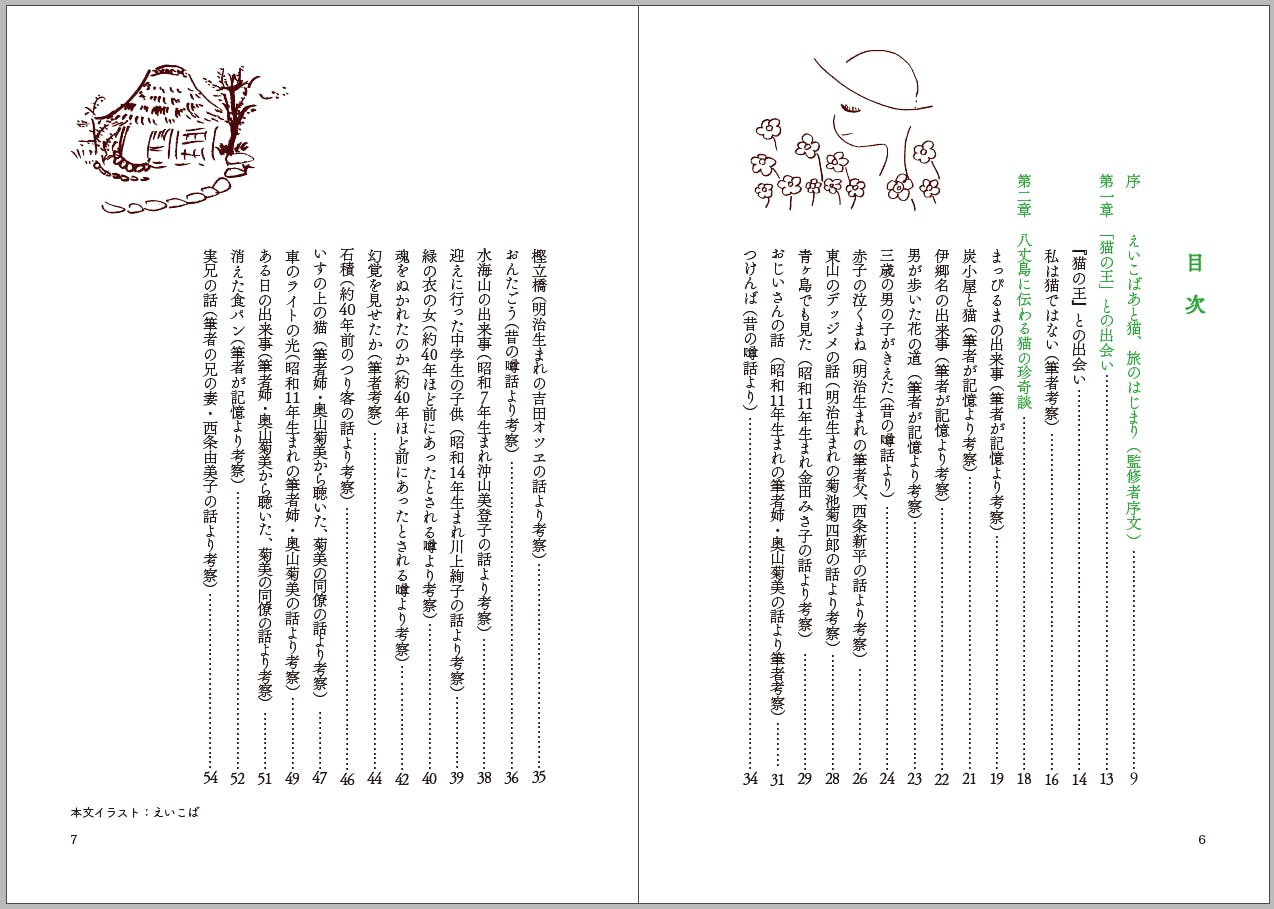 目次
序　えいこばあと猫、旅のはじまり（監修者序文）……9
第一章　「猫の王」との出会い……13
『猫の王』との出会い……14
私は猫ではない（筆者考察）……16
第二章　八丈島に伝わる猫の珍奇談……18
まっぴるまの出来事（筆者が記憶より考察）……19
炭小屋と猫（筆者が記憶より考察）……21
伊郷名の出来事（筆者が記憶より考察）……22
男が歩いた花の道（筆者が記憶より考察）……23
三歳の男の子がきえた（昔の噂話より）……24
赤子の泣くまね（明治生まれの筆者父、西条新平の話より考察）……26
東山のデッジメの話（明治生まれの菊池菊四郎の話より考察）……28
青ヶ島でも見た（昭和11年生まれ金田みさ子の話より考察）……29
おじいさんの話（昭和11年生まれの筆者姉・奥山菊美の話より筆者考察）……31
つけんば（昔の噂話より）……34
6
樫立橋（明治生まれの吉田オツヱの話より考察）……35
おんたごう（昔の噂話より考察）……36
水海山の出来事（昭和7年生まれ沖山美登子の話より考察）……38
迎えに行った中学生の子供（昭和14年生まれ川上絢子の話より考察）……39
緑の衣の女（約40年ほど前にあったとされる噂より考察）……40
魂をぬかれたのか（約40年ほど前にあったとされる噂より考察）……42
幻覚を見せたか（筆者考察）……44
石積（約40年前のつり客の話より考察）……46
いすの上の猫（筆者姉・奥山菊美から聴いた、菊美の同僚の話より考察）……47
車のライトの光（昭和11年生まれの筆者姉・奥山菊美の話より考察）……49
ある日の出来事（筆者姉・奥山菊美から聴いた、菊美の同僚の話より考察）……51
消えた食パン（筆者が記憶より考察）……52
実兄の話（筆者の兄の妻・西条由美子の話より考察）……54
本文イラスト：えいこば
7